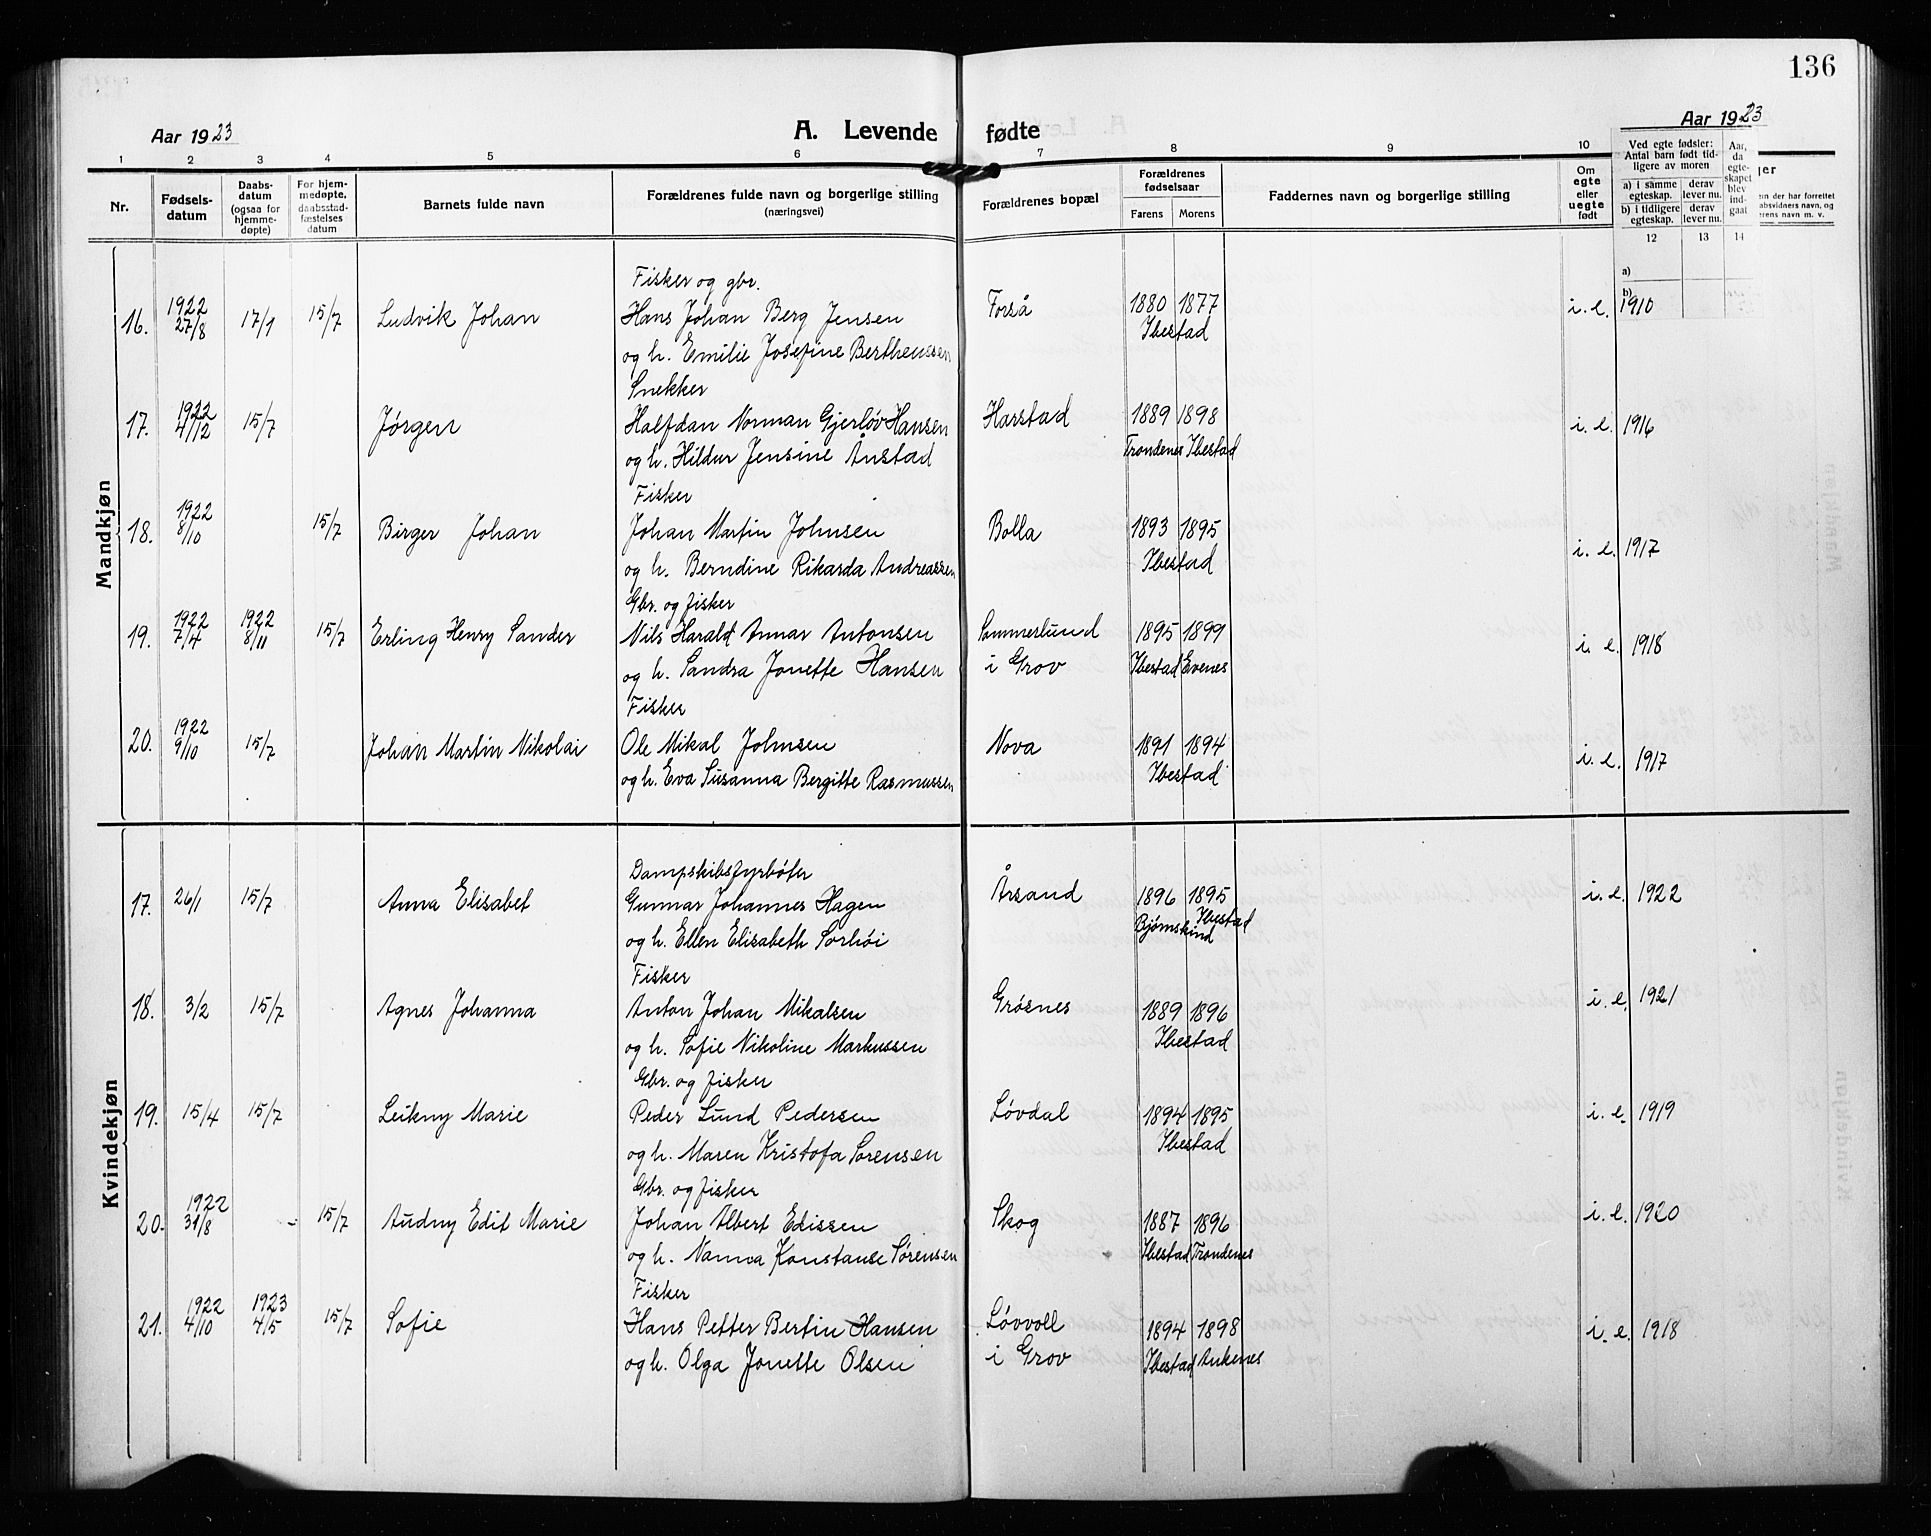 136
Aar 1923
A. Levende fødte
Aar 1923
1 2 3 4 5 6 7 8 9 10
Nr.
Fødsels-
datum
Daabs-
datum
(ogsaa for
hjemme-
døpte)
For hjem-
medøpte,
daabsstad-
fæstelses
datum
Barnets fulde navn
Forældrenes fulde navn og borgerlige stilling
(næringsvei)
Forældrenes bopæl
Forældrenes
fødselsaar
Farens Morens
Faddernes navn og borgerlige stilling
Om
egte
eller
uegte
født
Ved egte fødsler:
Antal barn født tid-
ligere av moren
a) i samme
egteskap.
derav
lever nu.
b) i tidligere
egteskap.
derav
lever nu.
Aar,
da
egte-
skapet
blev
ind-
gaat
12 13 14
a)
b)
Mandkjøn
Fisker og gbr.
16. 1922 27/8 17/1 15/7 Ludvik Johan Hans Johan Berg Jensen Forså 1880 1877 i. e. 1910
og h. Emilie Josefine Bertheussen Ibestad
Snekker
17. 1922 4/12 15/7 Jørgen Halfdan Norman Gjerløv Hansen Harstad 1889 1898 i. e. 1916
og h. Hildur Jensine Ånstad Trondenes Ibestad
Fisker
18. 1922 8/10 15/7 Birger Johan Johan Martin Johnsen Bolla 1893 1895 i. e. 1917
og h. Berndine Rikarda Andreassen Ibestad
Gbr. og fisker
19. 1922 7/4 1922 8/11 15/7 Erling Henry Sander Nils Harald Annar Antonsen Sommerlund 1895 1899 i. e. 1918
og h. Sandra Jonette Hansen i Grov Ibestad Evenes
Fisker
20. 1922 9/10 15/7 Johan Martin Nikolai Ole Mikal Johnsen Nova 1891 1894 i. e. 1917
og h. Eva Susanna Bergitte Rasmussen Ibestad
Kvindekjøn
Dampskibsfyrbøter
17. 26/1 15/7 Anna Elisabet Gunnar Johannes Hagen Årsand 1896 1895 i. e. 1922
og h. Ellen Elisabeth Sørhøi Bjørnskind Ibestad
Fisker
18. 3/2 15/7 Agnes Johanna Anton Johan Mikalsen Grøsnes 1889 1896 i. e. 1921
og h. Sofie Nikoline Markussen Ibestad
Gbr. og fisker
19. 15/4 15/7 Leikny Marie Peder Lund Pedersen Løvdal 1894 1895 i. e. 1919
og h. Maren Kristofa Sørensen Ibestad
Gbr. og fisker
20. 1922 31/8 - 15/7 Audny Edit Marie Johan Albert Edissen Skog 1887 1896 i. e. 1920
og h. Nanna Konstanse Sørensen Ibestad Trondenes
Fisker
21. 1922 4/10 1923 4/5 15/7 Sofie Hans Petter Bertin Hansen Løvvoll 1894 1898 i. e. 1918
og h. Olga Jonette Olsen i Grov Ibestad Ankenes